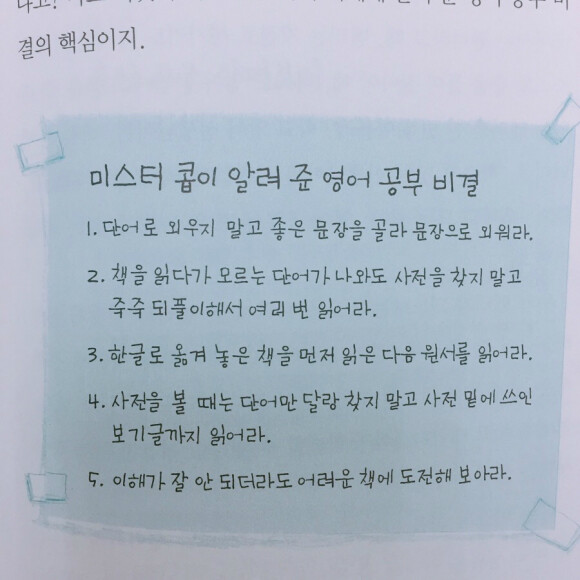 결의 핵심이지.
미스터 콥이 알려 준 영어 공부 비결
1. 단어로 외우지 말고 좋은 문장을 골라 문장으로 외워라.
2. 책을 읽다가 모르는 단어가 나와도 사전을 찾지 말고
죽죽 되풀이해서 여러 번 읽어라.
3. 한글로 옮겨 놓은 책을 먼저 읽은 다음 원서를 읽어라.
4. 사전을 볼 때는 단어만 달랑 찾지 말고 사전 밑에 쓰인
보기글까지 읽어라.
5. 이해가 잘 안 되더라도 어려운 책에 도전해 보아라.